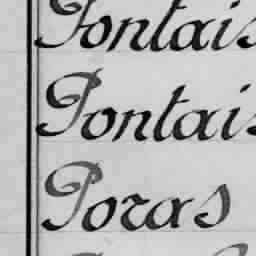 Pontais
Pontais
Poras